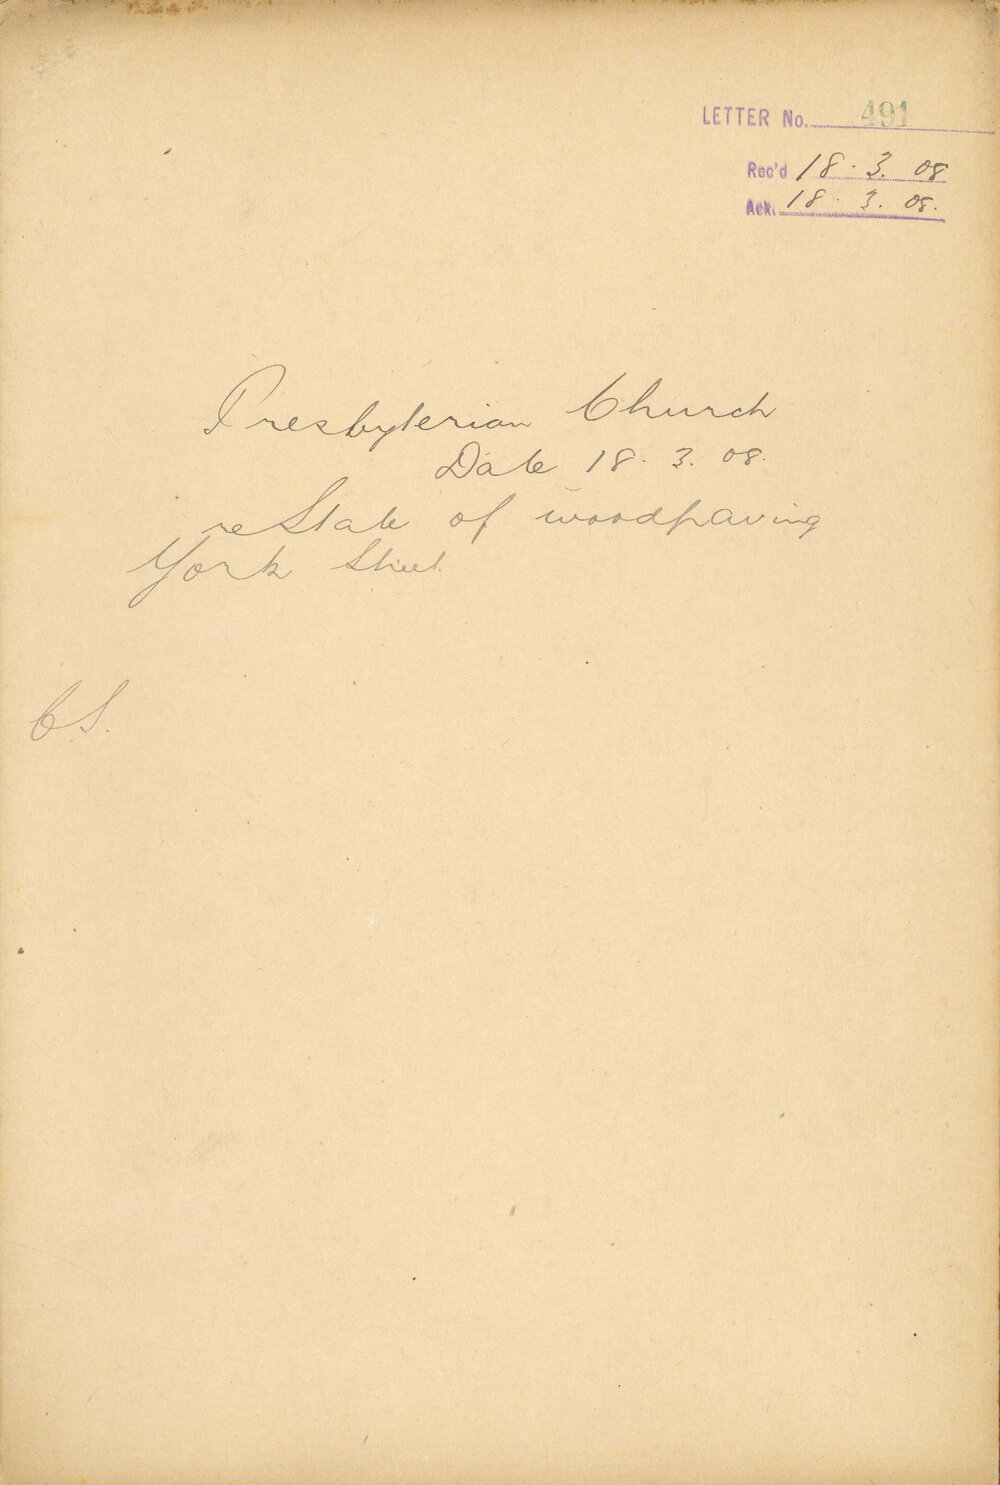 LETTER No. 491
Rec'd 18.3.08
Ack. 18.3.08.
Presbyterian Church
Date 18.3.08.
re State of woodpaving
York Street
C.S.